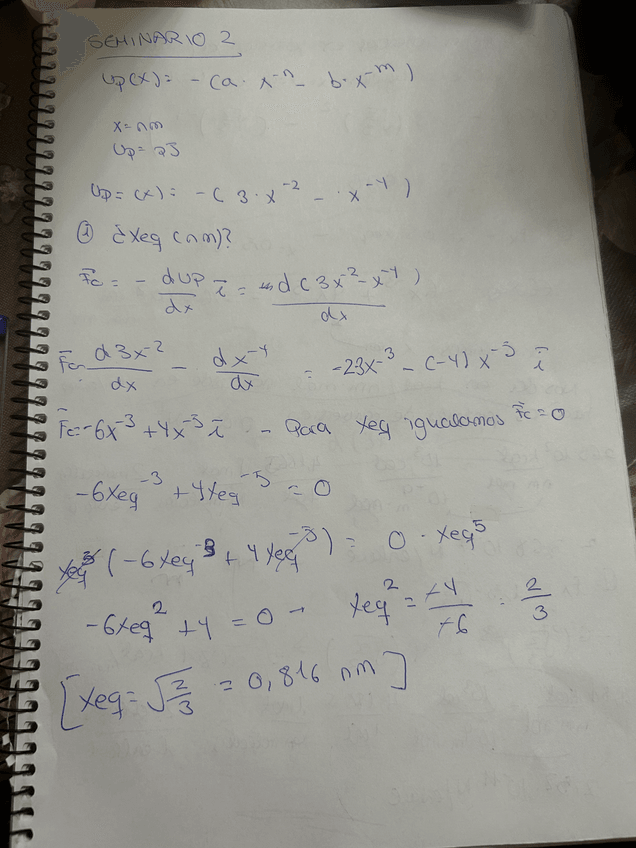 SEMINARIO 2
Up(x) = -(a · x⁻ⁿ - b · x⁻ᵐ)
x = nm
Up = pJ
Up = (x) = -(3 · x⁻² - · x⁻⁴)
① ¿Xeq (nm)?
F̄c = - dUp/dx ī = d(3x⁻² - x⁻⁴)/dx
F̄c = d3x⁻²/dx - dx⁻⁴/dx = -23x⁻³ - (-4)x⁻⁵ ī
F̄c = -6x⁻³ + 4x⁻⁵ ī - Para Xeq igualamos F̄c = 0
-6Xeq⁻³ + 4Xeq⁻⁵ = 0
Xeq⁵ (-6Xeq⁻³ + 4Xeq⁻⁵) = 0 · Xeq⁵
-6Xeq² + 4 = 0 → Xeq² = -4/-6 = 2/3
[Xeq = √2/3 = 0,816 nm]